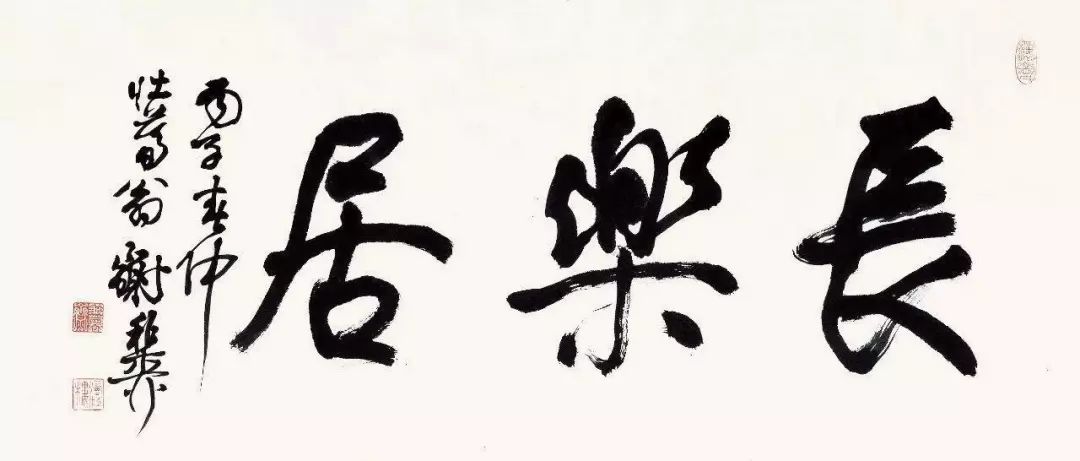 長樂居
丙子春仲
壯暮翁謝稚柳